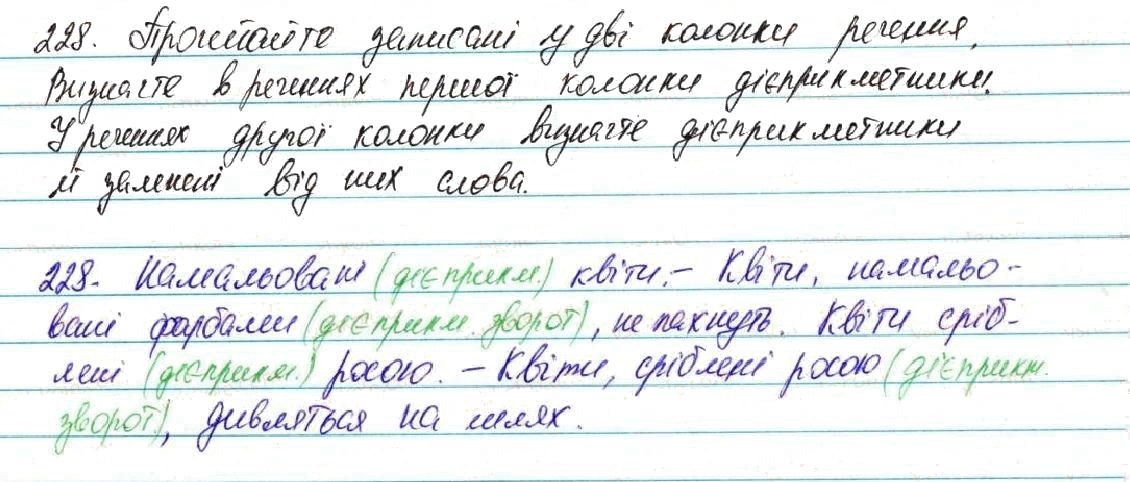 228. Прочитайте записані у дві колонки речення.
Визначте в реченнях першої колонки дієприкметники.
У реченнях другої колонки визначте дієприкметники
й залежні від них слова.
228. Намальовані (дієприкм.) квіти. – Квіти, намальо-
вані фарбами (дієприкм. зворот), не пахнуть. Квіти сріб-
лені (дієприкм.) росою. – Квіти, сріблені росою (дієприкм.
зворот), дивляться на шлях.